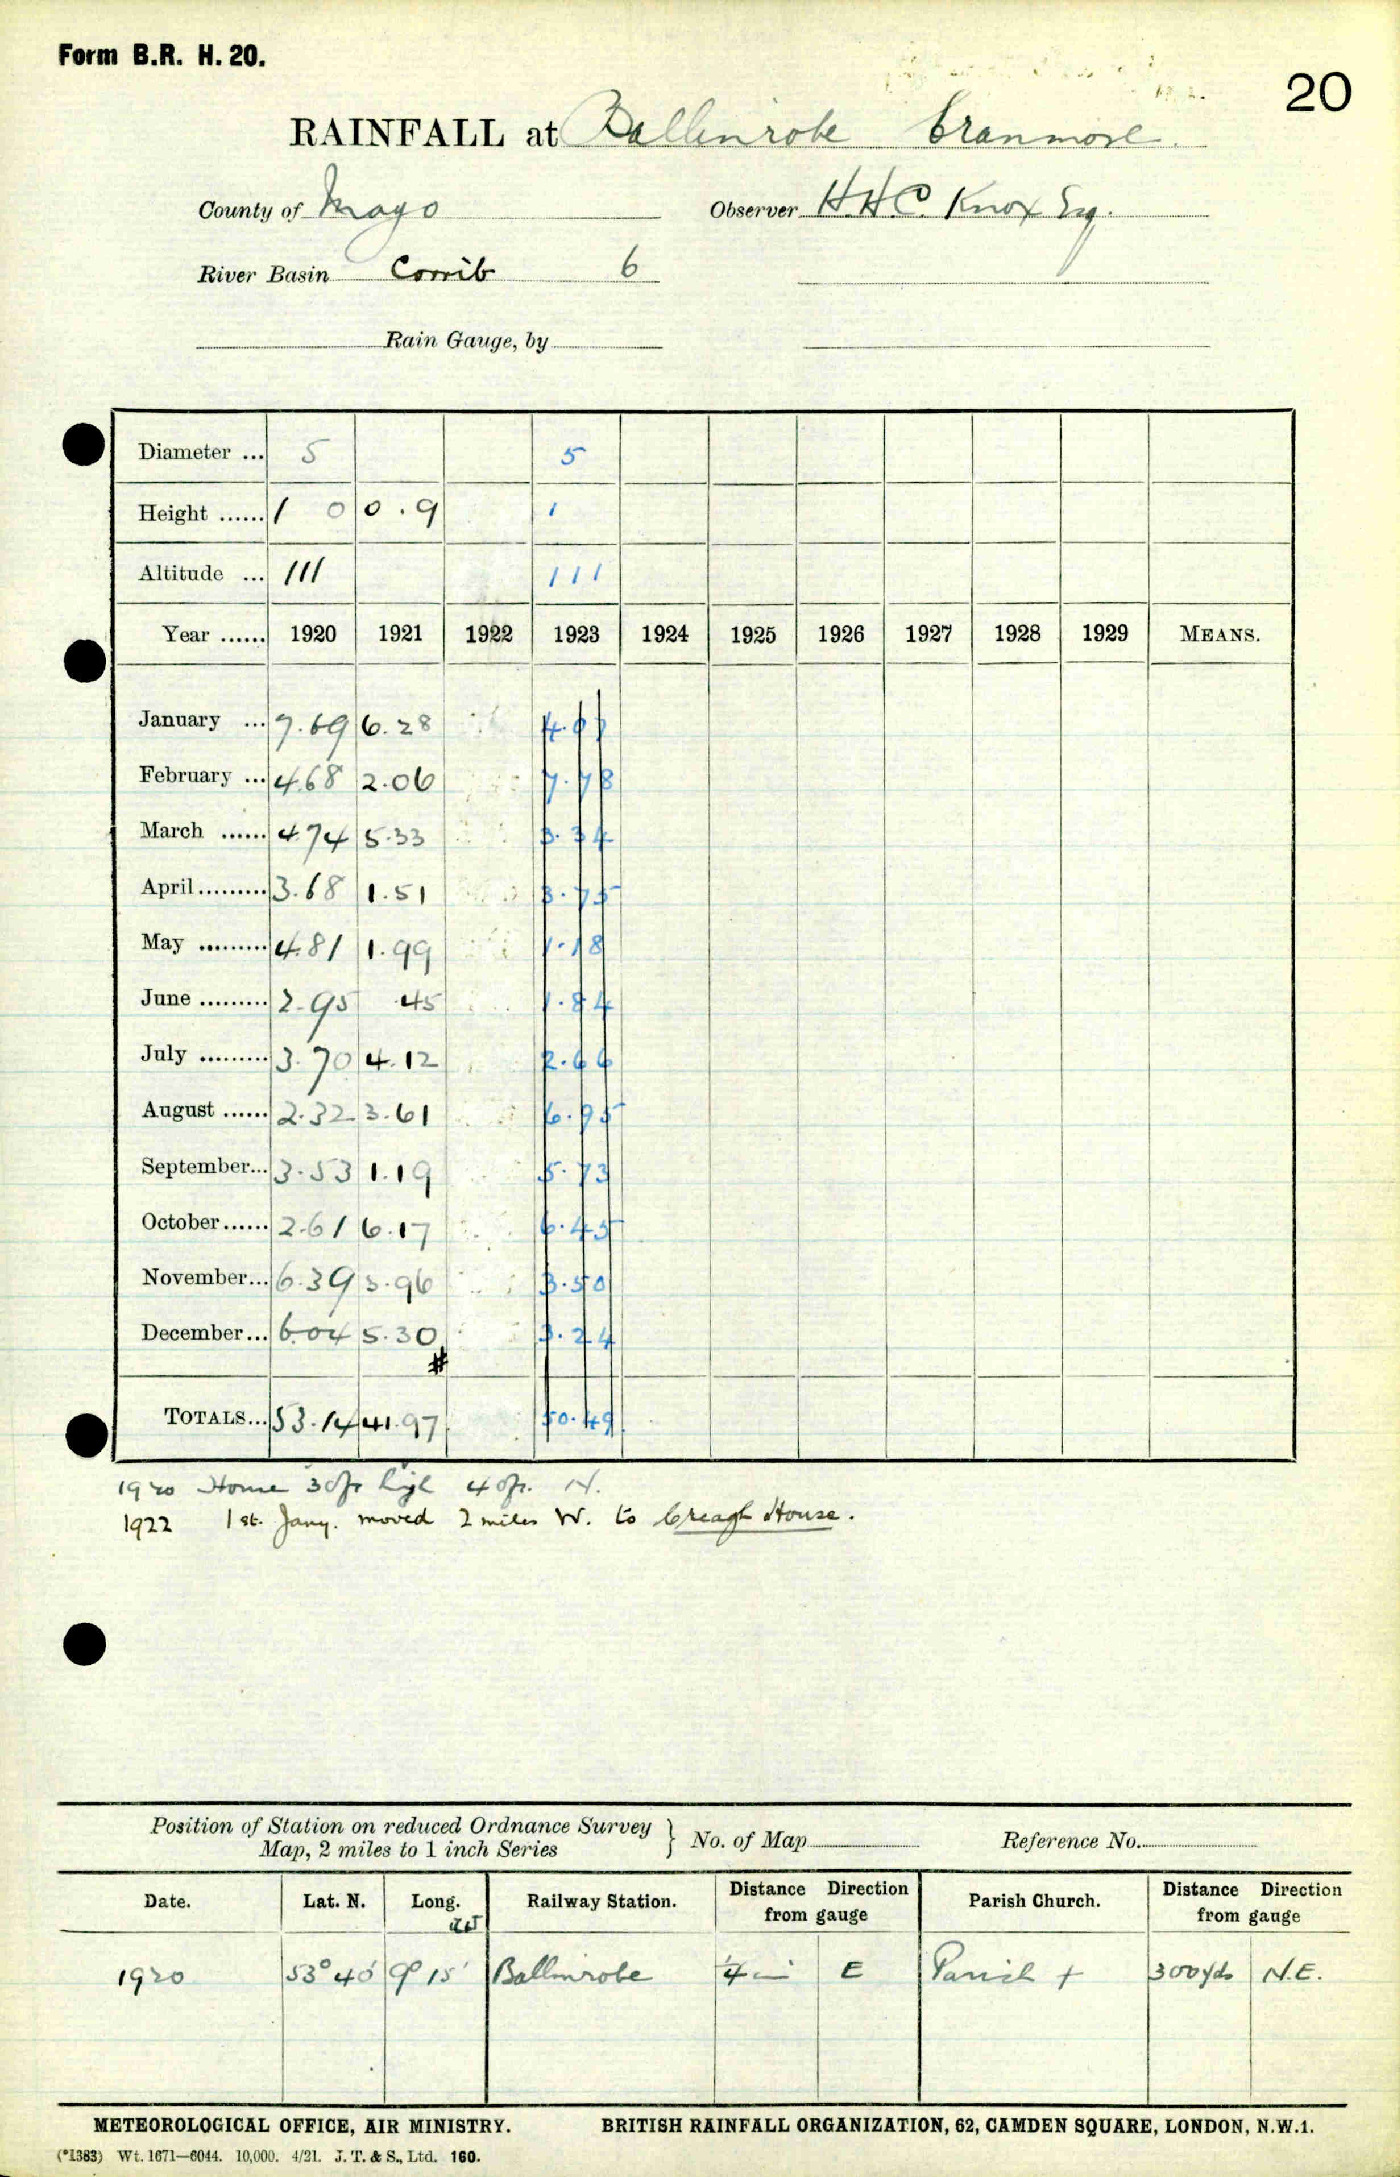 Form B.R. H. 20.
20
RAINFALL at Ballinrobe Cranmore
County of Mayo Observer H.H.C. Knox Esq.
River Basin Corrib 6
Rain Gauge, by
Diameter ... 5 5
Height ...... 1 0 0.9 1
Altitude ... 111 111
Year ...... 1920 1921 1922 1923 1924 1925 1926 1927 1928 1929 MEANS.
January ... 7.69 6.28 4.07
February ... 4.68 2.06 7.78
March ...... 4.74 5.33 3.34
April ......... 3.68 1.51 3.75
May ......... 4.81 1.99 1.18
June ......... 2.95 .45 1.84
July ......... 3.70 4.12 2.66
August ...... 2.32 3.61 6.95
September... 3.53 1.19 5.73
October ...... 2.61 6.17 6.45
November... 6.39 3.96 3.50
December... 6.04 5.30 3.24
#
TOTALS... 53.14 41.97 50.49
1920 House 30ft high 40ft. N.
1922 1st. Jany. moved 2 miles W. to Creagh House.
Position of Station on reduced Ordnance Survey
Map, 2 miles to 1 inch Series } No. of Map Reference No.
Date. Lat. N. Long. W Railway Station. Distance Direction from gauge Parish Church. Distance Direction from gauge
1920 53° 40' 9° 15' Ballinrobe 1/4 mi E Parish + 300 yds N.E.
METEOROLOGICAL OFFICE, AIR MINISTRY. BRITISH RAINFALL ORGANIZATION, 62, CAMDEN SQUARE, LONDON, N.W.1.
(*1383) Wt. 1671—6044. 10,000. 4/21. J. T. & S., Ltd. 160.